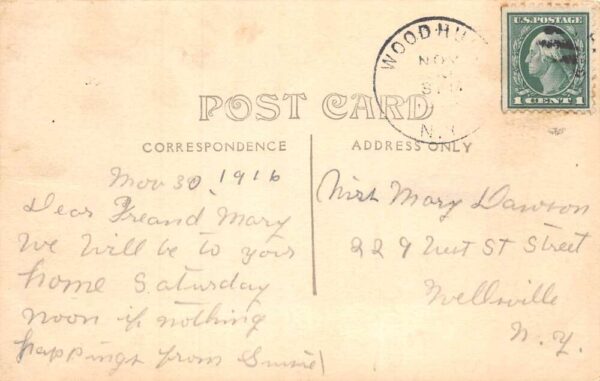 WOODHU
NOV
N.Y.
U.S. POSTAGE
1 CENT 1
POST CARD
CORRESPONDENCE
ADDRESS ONLY
Nov 30, 1916
Dear Freand Mary
We Will be to your
home Saturday
noon if nothing
happings from Susie
Mrs Mary Dawson
229 St Street
Wellsville
N.Y.